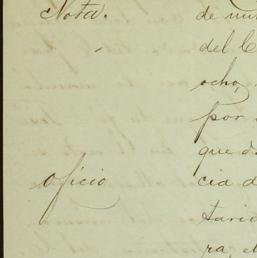 Nota.
de nu
del C
ocho,
por
que d
Oficio
cia d
taric
ra, el